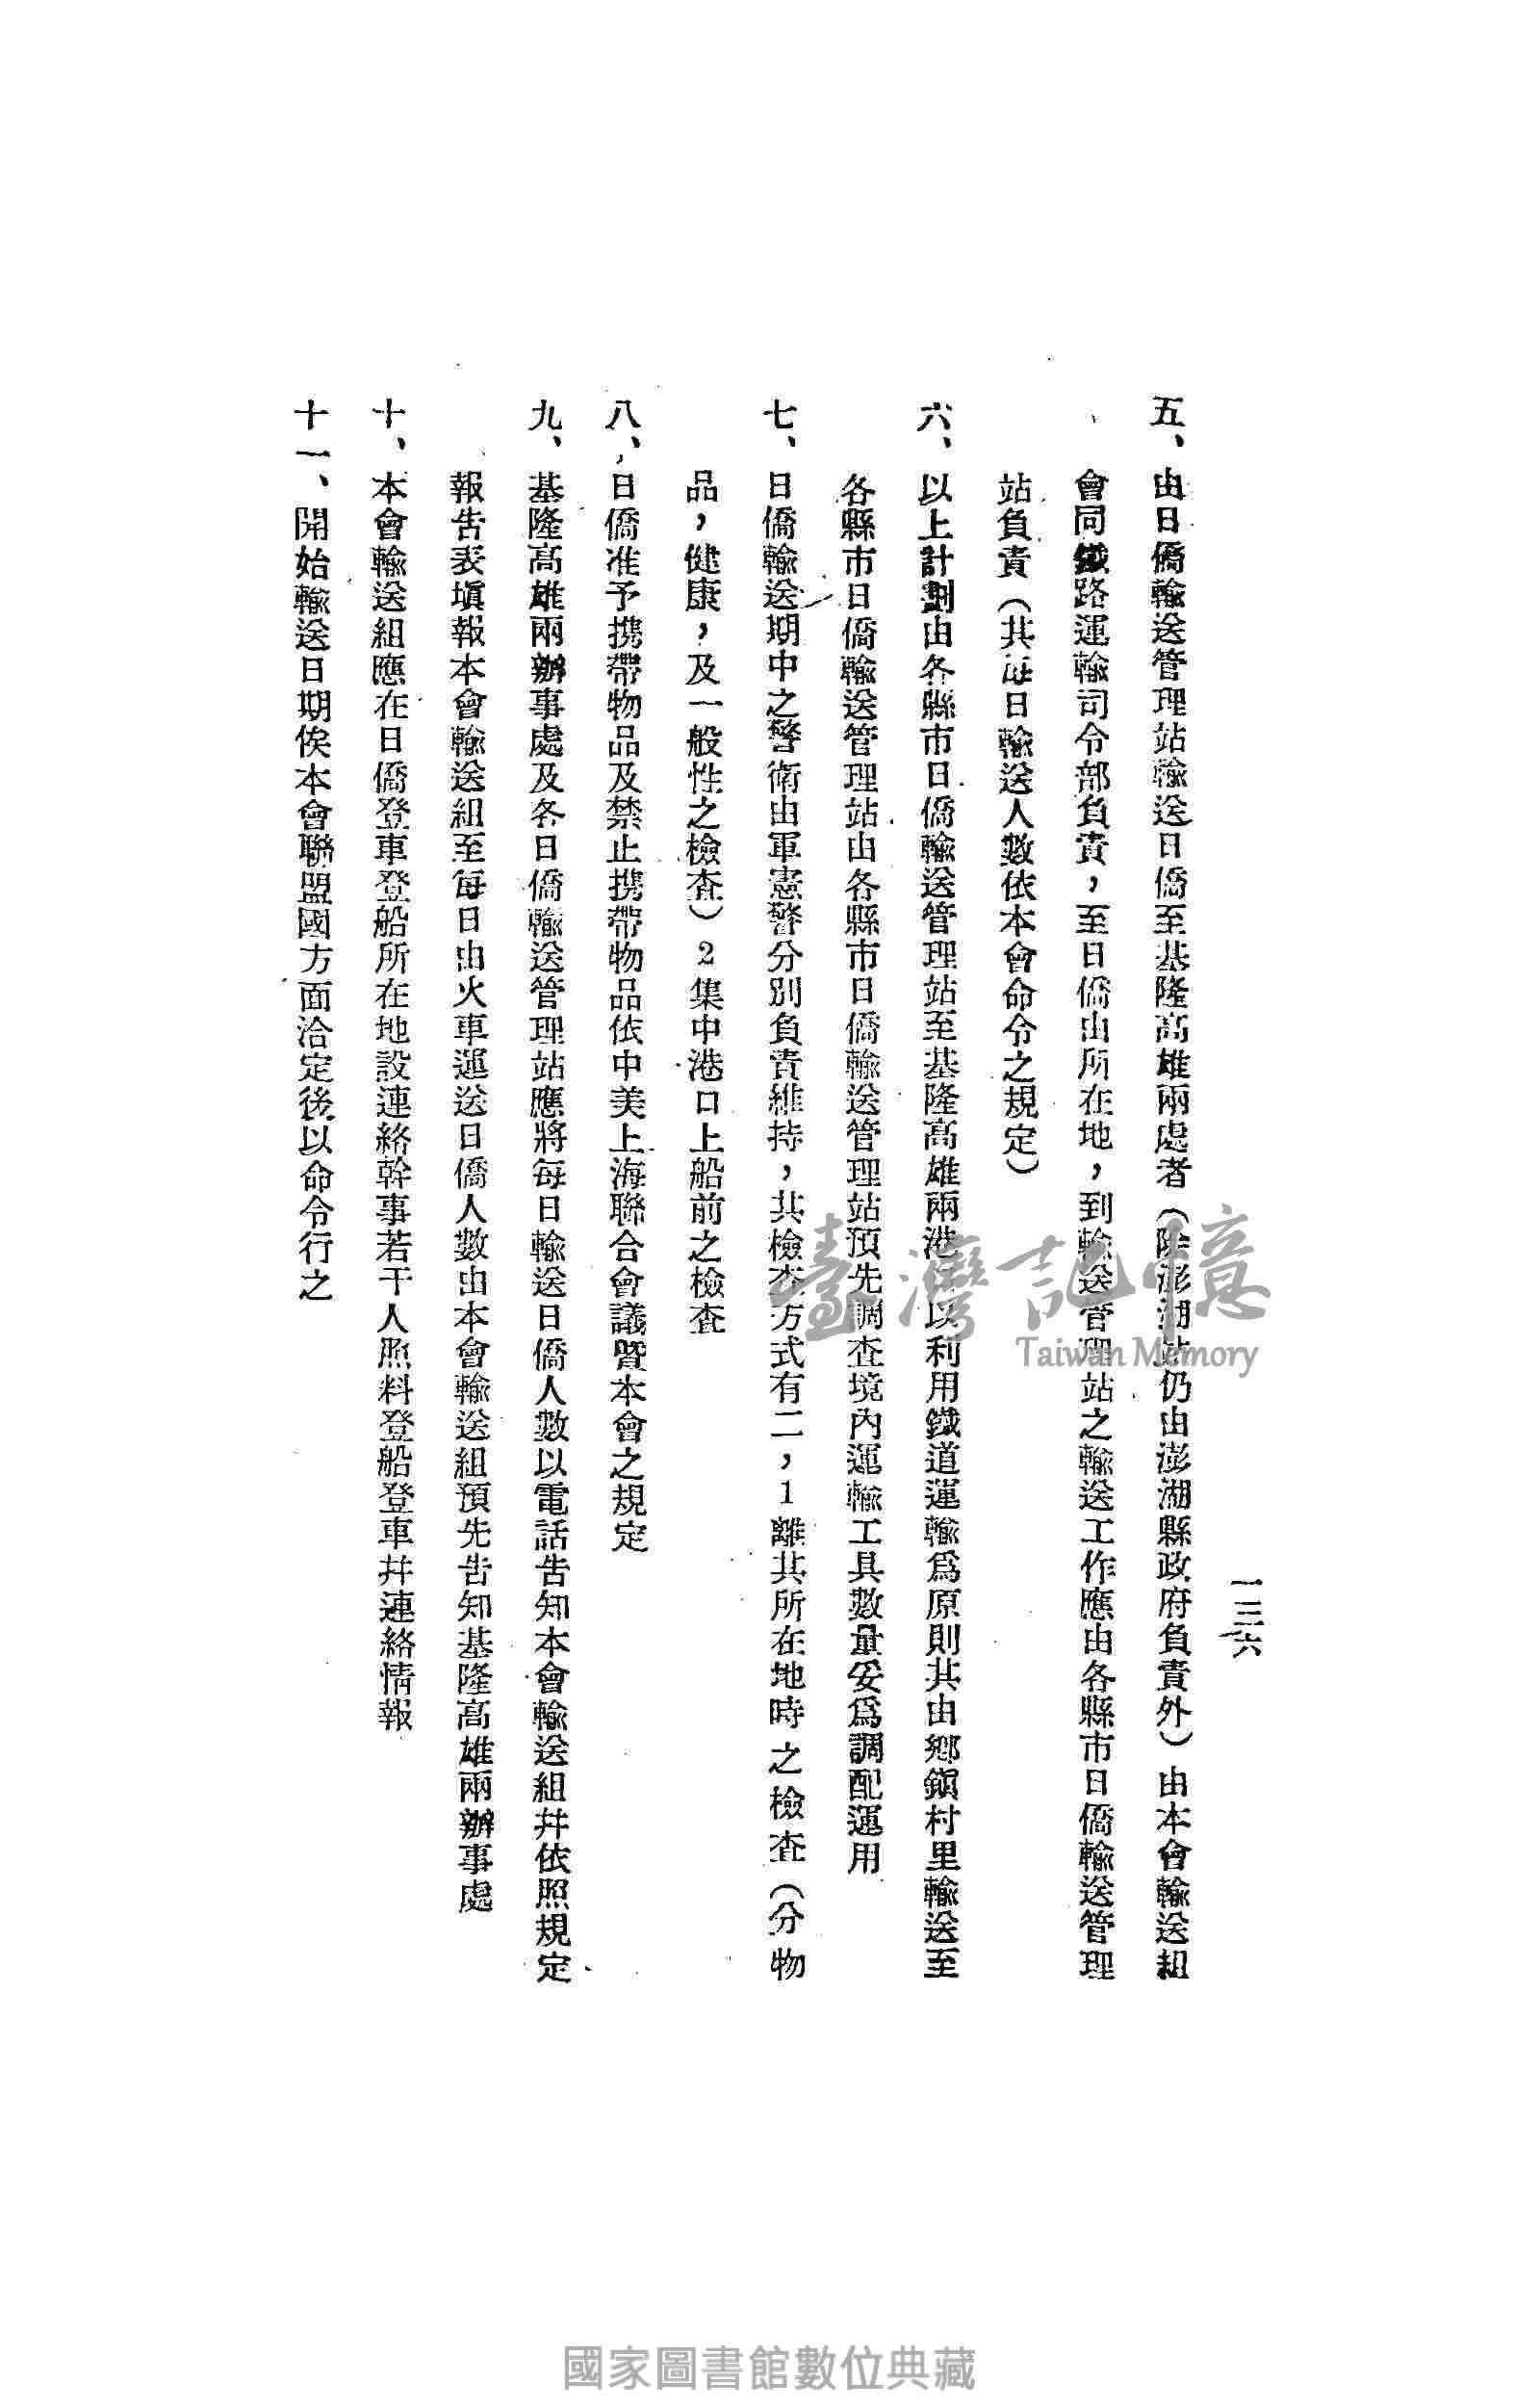 一三六
五、由日僑輸送管理站輸送日僑至基隆高雄兩處者（除澎湖站仍由澎湖縣政府負責外）由本會輸送組
會同鐵路運輸司令部負責，至日僑由所在地，到輸送管理站之輸送工作應由各縣市日僑輸送管理
站負責（其每日輸送人數依本會命令之規定）
六、以上計劃由各縣市日僑輸送管理站至基隆高雄兩港口以利用鐵道運輸爲原則其由鄉鎭村里輸送至
各縣市日僑輸送管理站由各縣市日僑輸送管理站預先調查境內運輸工具數量妥爲調配運用
七、日僑輸送期中之警衛由軍憲警分別負責維持，其檢查方式有二，1離其所在地時之檢查（分物
品，健康，及一般性之檢查）2集中港口上船前之檢查
八、日僑准予携帶物品及禁止携帶物品依中美上海聯合會議暨本會之規定
九、基隆高雄兩辦事處及各日僑輸送管理站應將每日輸送日僑人數以電話告知本會輸送組幷依照規定
報告表塡報本會輸送組至每日由火車運送日僑人數由本會輸送組預先告知基隆高雄兩辦事處
十、本會輸送組應在日僑登車登船所在地設連絡幹事若干人照料登船登車幷連絡情報
十一、開始輸送日期俟本會聯盟國方面洽定後以命令行之
臺灣記憶
Taiwan Memory
國家圖書館數位典藏